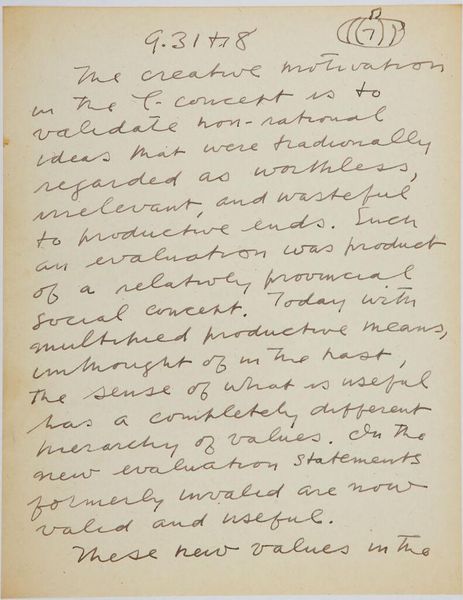 9.31 + 78
7
The creative motivation
in the T-concept is to
validate non-rational
ideas that were tradionally
regarded as worthless,
irrelevant, and wasteful
to productive ends. Such
an evaluation was product
of a relativly provincial
social concept. Today with
multiplied productive means,
unthought of in the past,
the sense of what is useful
has a completely different
hierarchy of values. In the
new evaluation statements
formerly invalid are now
valid and useful.
These new values in the